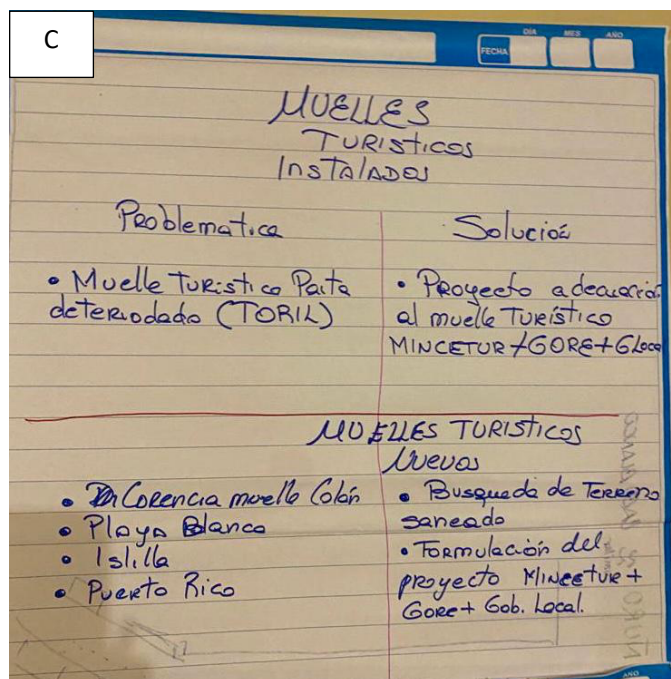 C
FECHA
DIA MES AÑO
MUELLES
TURISTICOS
INSTALADOS
Problematica
• Muelle Turistico Paita
deteriodado (TORIL)
Solución
• Proyecto adecuación
al muelle Turístico
MINCETUR + GORE + GLocal
MUELLES TURISTICOS
Nuevos
• Carencia muelle Colán
• Playa Blanca
• Islilla
• Puerto Rico
• Busqueda de Terreno
saneado
• Formulación del
proyecto Mincetur +
Gore + Gob. Local.
AÑO